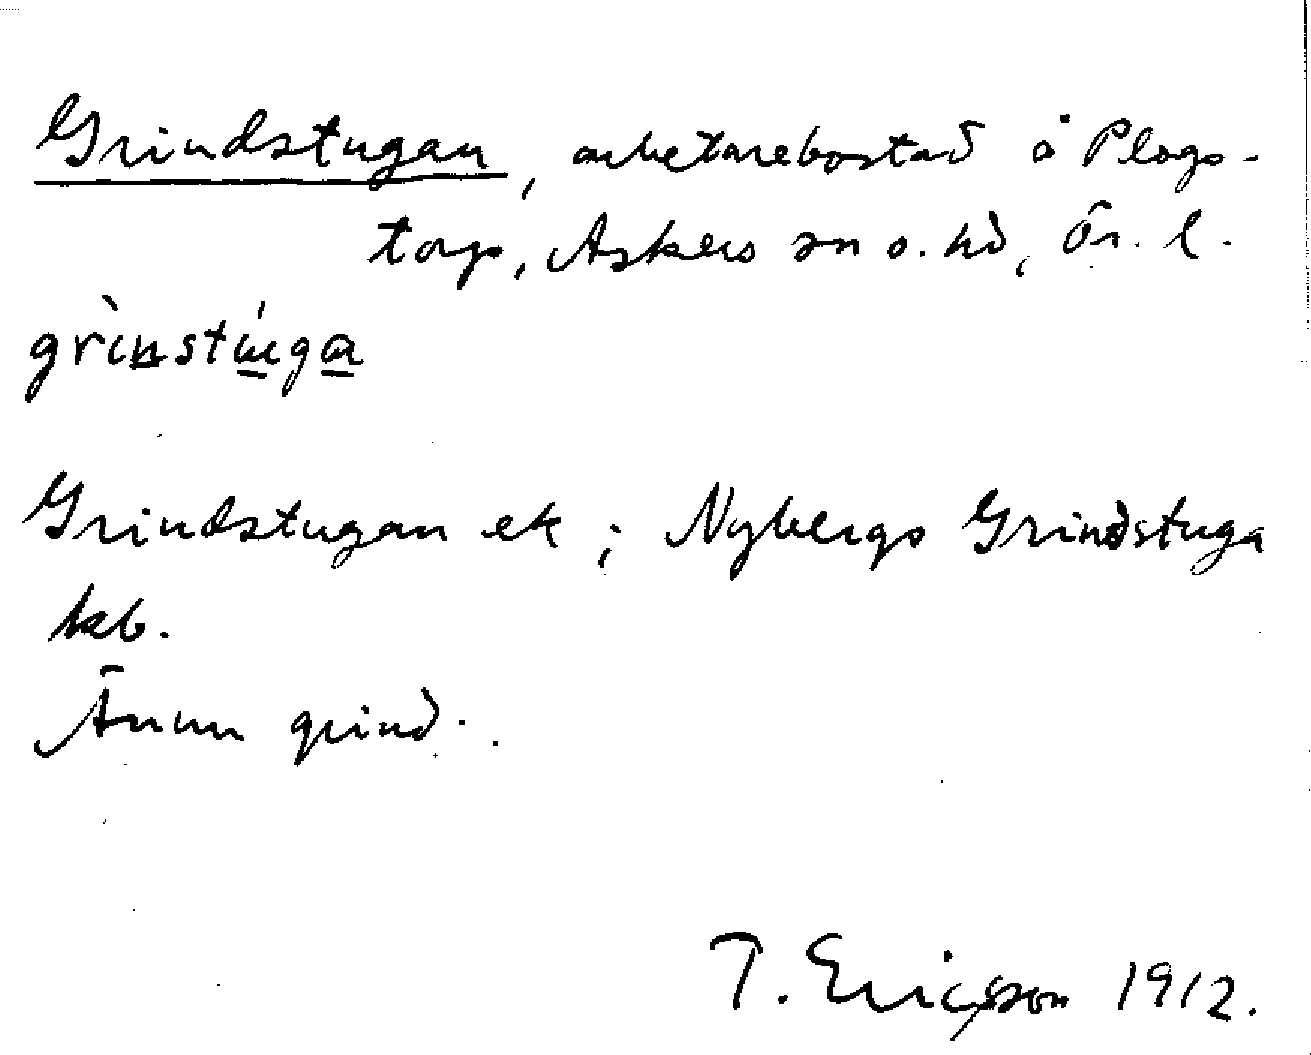 Grindstugan, arbetarebostad å Plogs-
torp, Askers sn o. hd, Ör. l.
grìnstúga
Grindstugan ek; Nybergs Grindstuga
hkb.
Ämnn grind.
T. Ericsson 1912.